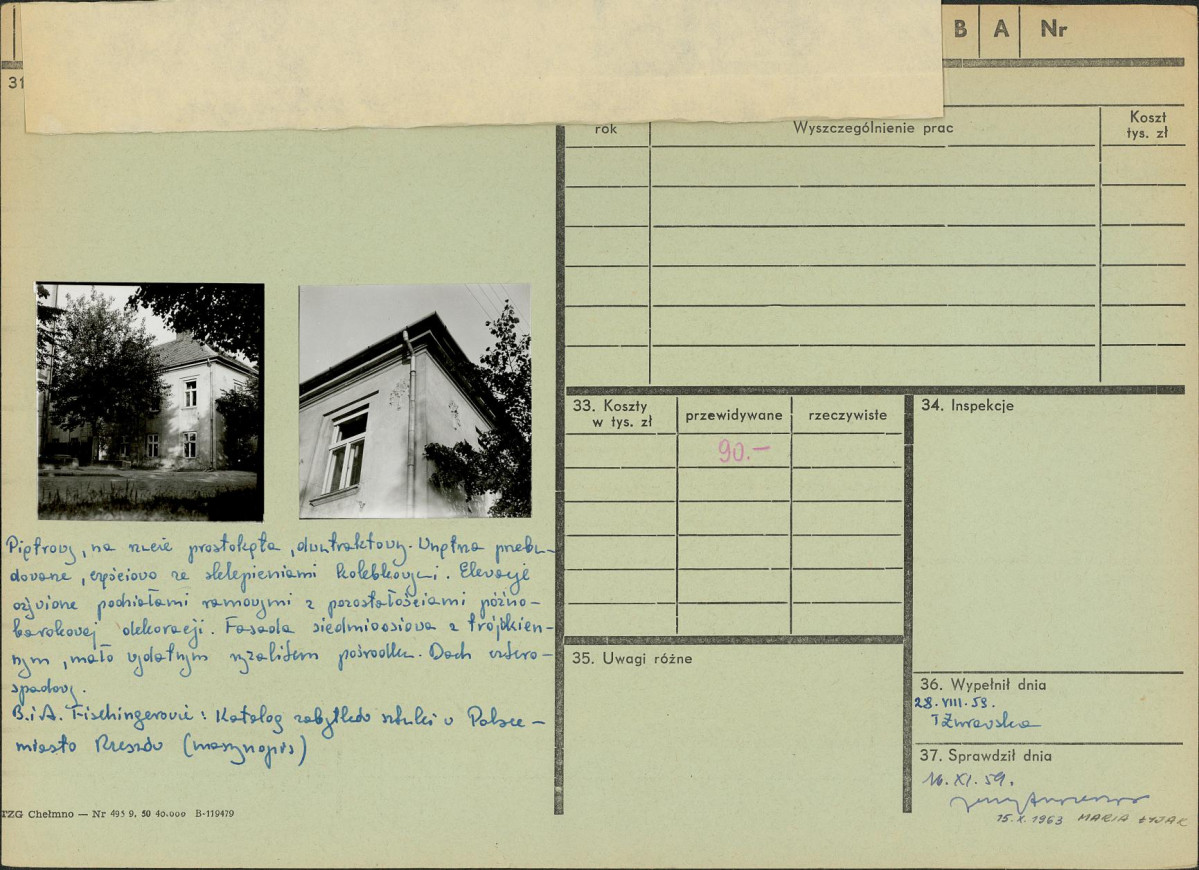 B A Nr
31
rok Wyszczególnienie prac Koszt tys. zł
33. Koszty w tys. zł przewidywane rzeczywiste
90.-
34. Inspekcje
Piętrowy, na rzucie prostokąta, dwutraktowy. Wnętrza przebu-
dowane, częściowo ze sklepieniami kolebkowymi. Elewacje
ożywione podziałami ramowymi z pozostałościami późno-
barokowej dekoracji. Fasada siedmioosiowa z trójkien-
nym, mało wydatnym ryzalitem pośrodku. Dach cztero-
spadowy.
B. i A. Fischingerowie: Katalog zabytków sztuki w Polsce -
miasto Rzeszów (maszynopis)
35. Uwagi różne
36. Wypełnił dnia
28.VIII.59.
TŻurawska
37. Sprawdził dnia
16.XI.59.
15.X.1963 MARIA ŁYJAK
TZG Chełmno — Nr 495 9. 50 40.000 B-119479